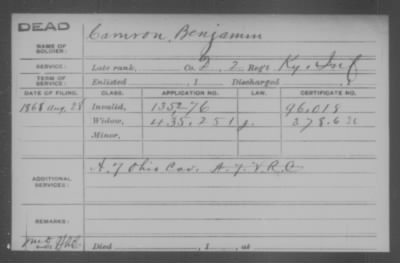 DEAD
NAME OF SOLDIER: Camron, Benjamin
SERVICE: Late rank, Co. 2 Reg't Ky. Inf
TERM OF SERVICE: Enlisted , 1 Discharged , 1
DATE OF FILING. CLASS. APPLICATION NO. LAW. CERTIFICATE NO.
1868 Aug. 28 Invalid, 135276 96.018
Widow, 435.251
Minor,
ADDITIONAL SERVICES: A. 7 Ohio Cav. A. 7 V.R.C
REMARKS:
Died , 1 , at